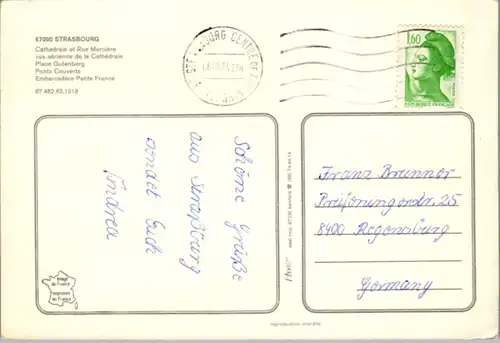 67000 STRASBOURG
Cathédrale et Rue Mercière
vue aérienne de la Cathédrale
Place Gutenberg
Ponts Couverts
Embarcadère Petite France
67.482.63.1018
STRASBOURG CENTRE
1,60
Schöne Grüße
aus Straßburg
sendet Euch
Andrea
Franz Brunner
Preißnungordr. 25
8400 Regensburg
Germany
image
de France
imagerie
de France
reproduction interdite